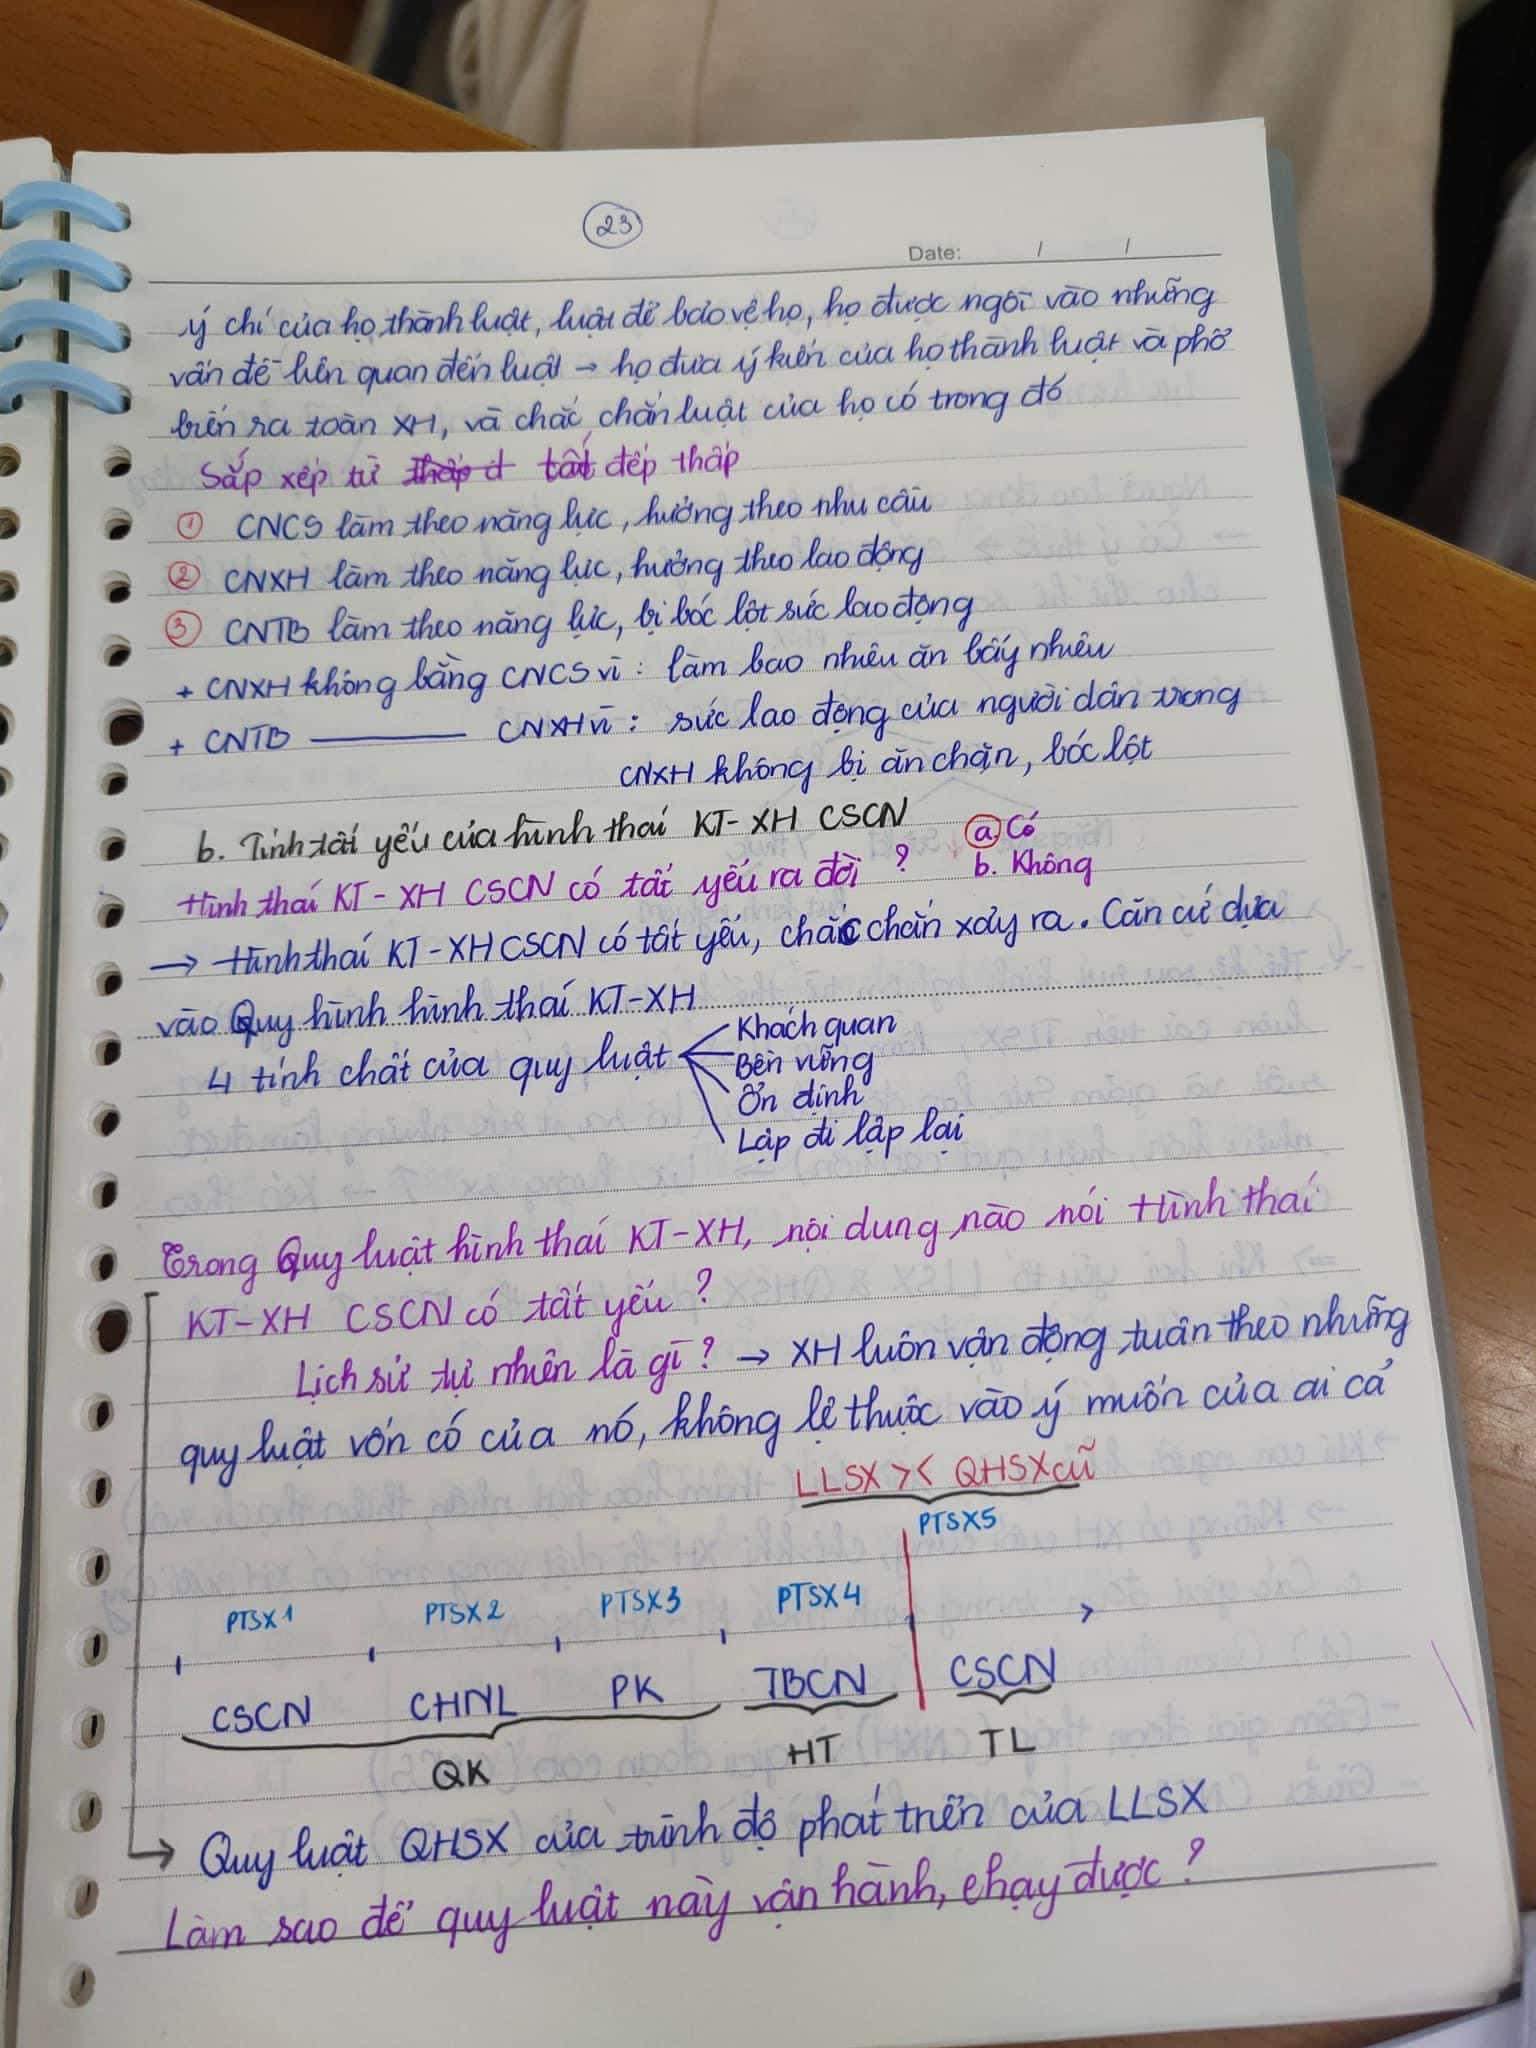 23
Date: / /
ý chí của họ thành luật, luật để bảo vệ họ, họ được ngồi vào những
vấn đề liên quan đến luật → họ đưa ý kiến của họ thành luật và phổ
biến ra toàn XH, và chắc chắn luật của họ có trong đó
Sắp xếp từ thấp đ tốt đếp thấp
① CNCS làm theo năng lực, hưởng theo nhu cầu
② CNXH làm theo năng lực, hưởng theo lao động
③ CNTB làm theo năng lực, bị bóc lột sức lao động
+ CNXH không bằng CNCS vì : làm bao nhiêu ăn bấy nhiêu
+ CNTB ——— CNXH vì : sức lao động của người dân trong
CNXH không bị ăn chặn, bóc lột
b. Tính tất yếu của hình thái KT-XH CSCN
a. Có
Hình thái KT-XH CSCN có tất yếu ra đời ? b. Không
→ Hình thái KT-XH CSCN có tất yếu, chắc chắn xảy ra. Căn cứ dựa
vào Quy hình hình thái KT-XH
4 tính chất của quy luật
Khách quan
Bền vững
Ổn định
Lặp đi lặp lại
Trong Quy luật hình thái KT-XH, nội dung nào nói Hình thái
KT-XH CSCN có tất yếu ?
Lịch sử tự nhiên là gì ? → XH luôn vận động tuân theo những
quy luật vốn có của nó, không lệ thuộc vào ý muốn của ai cả
LLSX >< QHSX cũ
PTSX5
PTSX1 PTSX2 PTSX3 PTSX4
CSCN CHNL PK TBCN CSCN
QK HT TL
→ Quy luật QHSX của trình độ phát triển của LLSX
Làm sao để quy luật này vận hành, chạy được ?